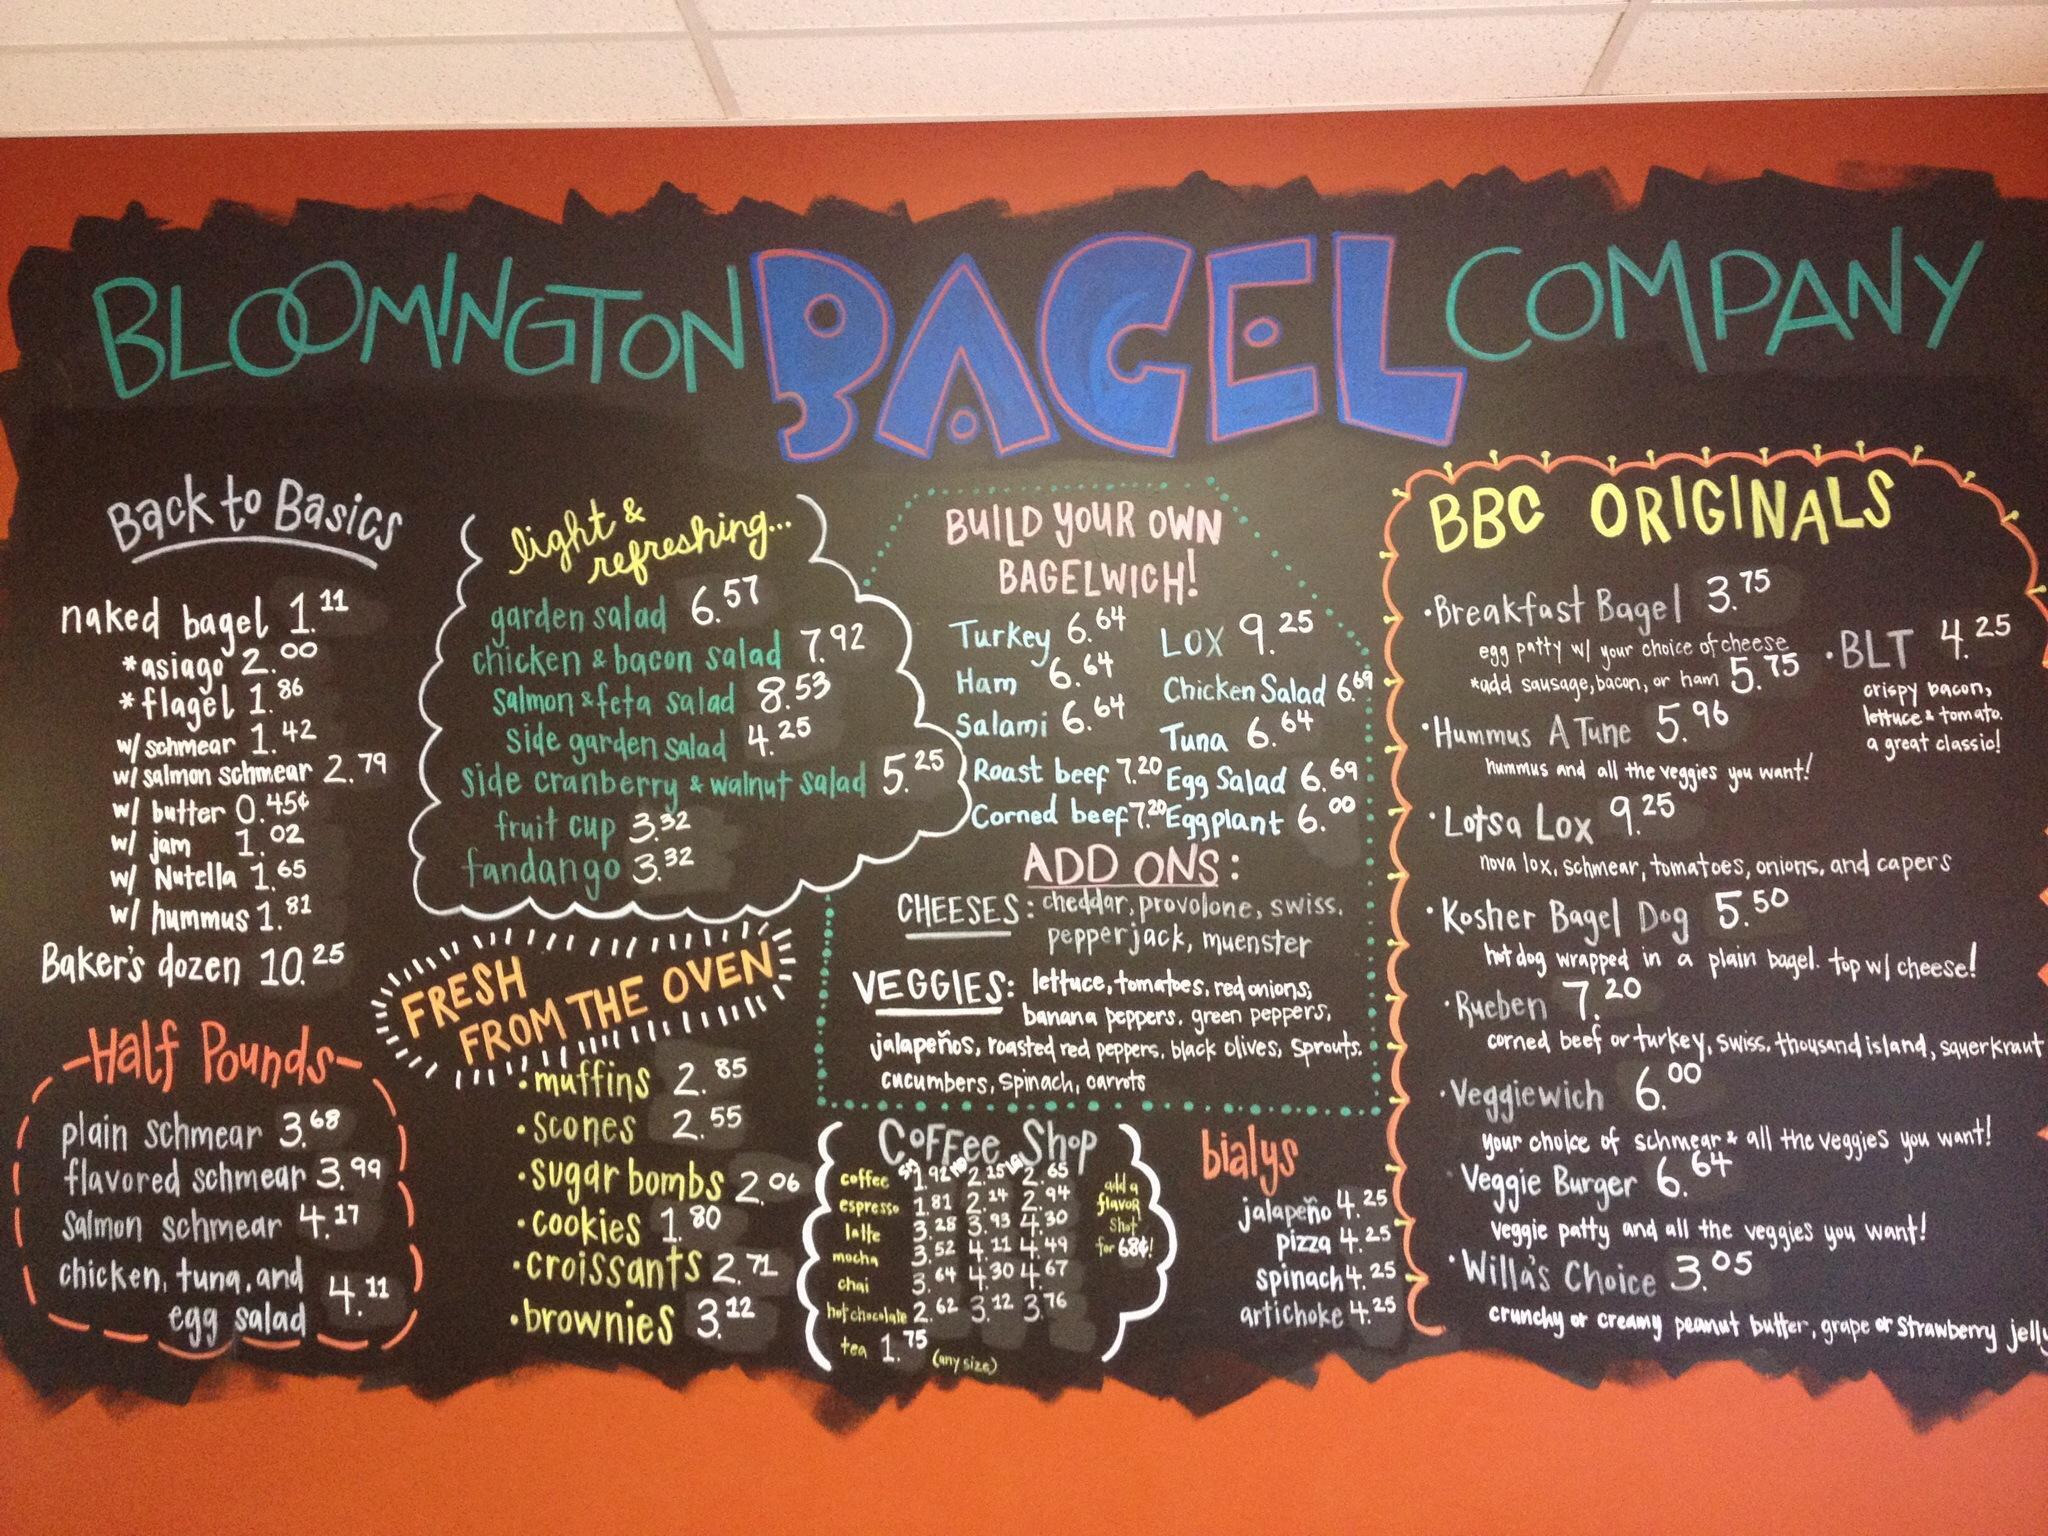 BLOOMINGTON BAGEL COMPANY
Back to Basics
naked bagel 1.11
*asiago 2.00
*flagel 1.86
w/ schmear 1.42
w/ salmon schmear 2.79
w/ butter 0.45¢
w/ jam 1.02
w/ Nutella 1.65
w/ hummus 1.81
Baker's dozen 10.25
-Half Pounds-
plain schmear 3.68
flavored schmear 3.99
salmon schmear 4.17
chicken, tuna, and
egg salad 4.11
light &
refreshing...
garden salad 6.57
chicken & bacon salad 7.92
salmon & feta salad 8.53
side garden salad 4.25
side cranberry & walnut salad 5.25
fruit cup 3.32
fandango 3.32
FRESH
FROM THE OVEN
• muffins 2.85
• scones 2.55
• sugar bombs 2.06
• cookies 1.80
• croissants 2.71
• brownies 3.12
BUILD YOUR OWN
BAGELWICH!
Turkey 6.64
Ham 6.64
Salami 6.64
Roast beef 7.20
Corned beef 7.20
LOX 9.25
Chicken Salad 6.69
Tuna 6.64
Egg Salad 6.69
Eggplant 6.00
ADD ONS:
CHEESES: cheddar, provolone, swiss,
pepperjack, muenster
VEGGIES: lettuce, tomatoes, red onions,
banana peppers, green peppers,
jalapeños, roasted red peppers, black olives, sprouts,
cucumbers, spinach, carrots
Coffee Shop
coffee 1.92 2.15 2.65
espresso 1.81 2.24 2.94
latte 3.28 3.93 4.30
mocha 3.52 4.11 4.49
chai 3.64 4.30 4.67
hot chocolate 2.62 3.12 3.76
tea 1.75 (any size)
add a
flavor
shot
for 68¢!
bialys
jalapeño 4.25
pizza 4.25
spinach 4.25
artichoke 4.25
BBC ORIGINALS
• Breakfast Bagel 3.75
egg patty w/ your choice of cheese
*add sausage, bacon, or ham 5.75
• BLT 4.25
crispy bacon,
lettuce & tomato.
a great classic!
• Hummus A Tune 5.96
hummus and all the veggies you want!
• Lotsa Lox 9.25
nova lox, schmear, tomatoes, onions, and capers
• Kosher Bagel Dog 5.50
hot dog wrapped in a plain bagel. top w/ cheese!
• Rueben 7.20
corned beef or turkey, swiss, thousand island, sauerkraut
• Veggiewich 6.00
your choice of schmear & all the veggies you want!
• Veggie Burger 6.64
veggie patty and all the veggies you want!
• Willa's Choice 3.05
crunchy or creamy peanut butter, grape or strawberry jelly